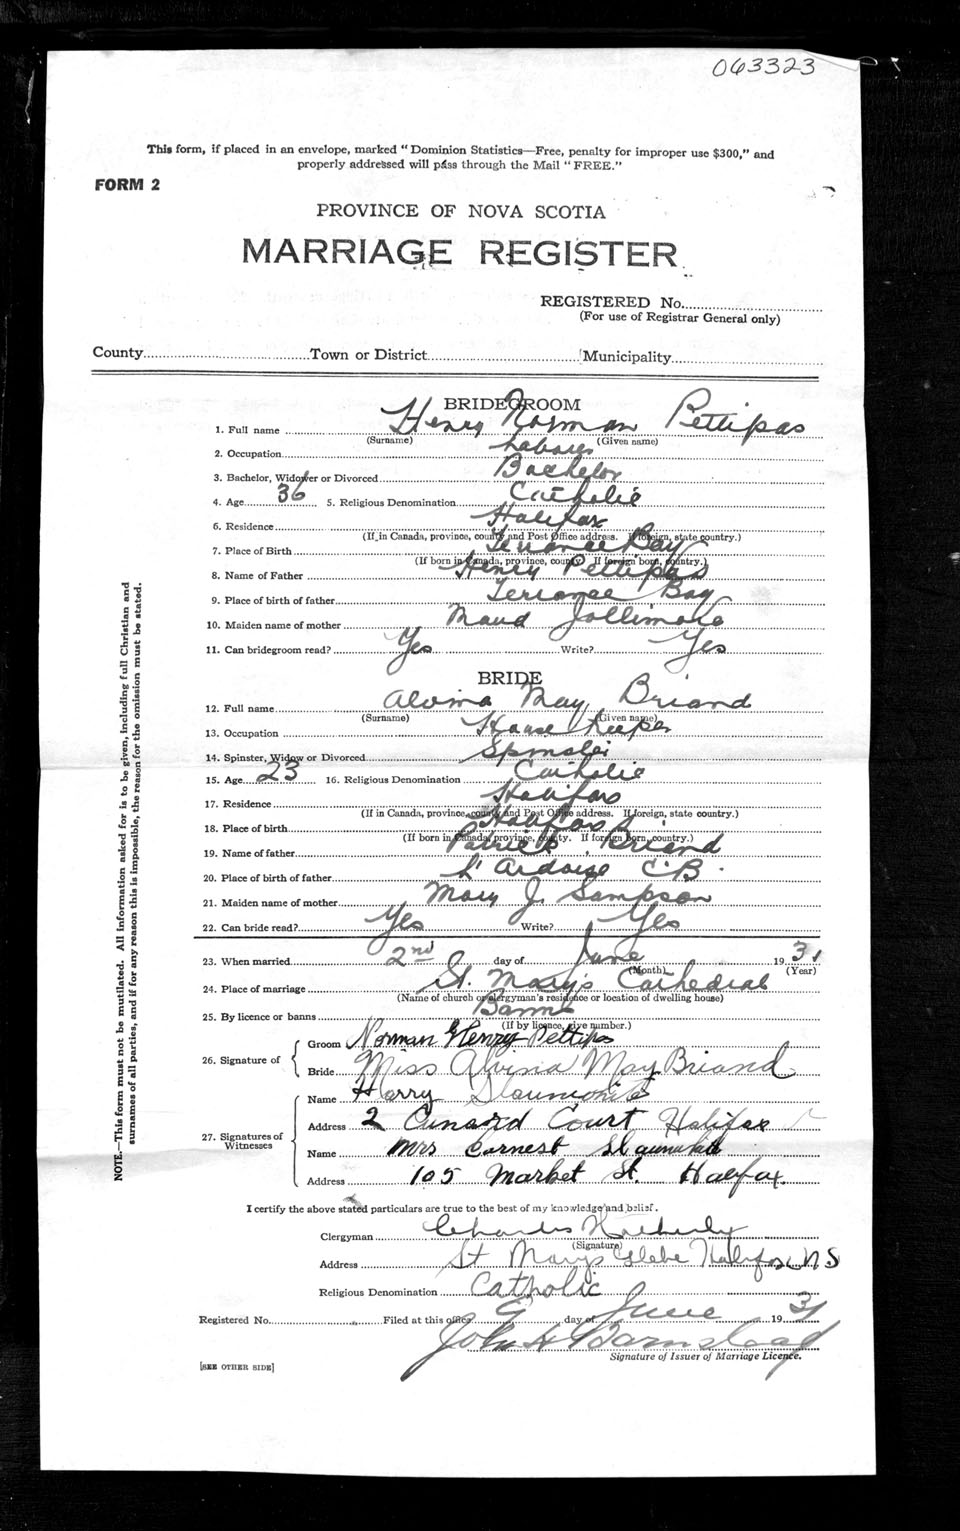 063323
This form, if placed in an envelope, marked "Dominion Statistics—Free, penalty for improper use $300," and
properly addressed will pass through the Mail "FREE."
FORM 2
PROVINCE OF NOVA SCOTIA
MARRIAGE REGISTER
REGISTERED No.
(For use of Registrar General only)
County Town or District Municipality
BRIDEGROOM
1. Full name Henry Norman Pettipas
(Surname) (Given name)
2. Occupation Labourer
3. Bachelor, Widower or Divorced Bachelor
4. Age 36 5. Religious Denomination Catholic
6. Residence Halifax
(If in Canada, province, county and Post Office address. If foreign, state country.)
7. Place of Birth Terrance Bay
(If born in Canada, province, county. If foreign born, country.)
8. Name of Father Henry Pettipas
9. Place of birth of father Terrance Bay
10. Maiden name of mother Maud Jollimore
11. Can bridegroom read? Yes Write? Yes
BRIDE
12. Full name Alvina May Briand
(Surname) (Given name)
13. Occupation House keeper
14. Spinster, Widow or Divorced Spinster
15. Age 23 16. Religious Denomination Catholic
17. Residence Halifax
(If in Canada, province, county and Post Office address. If foreign, state country.)
18. Place of birth Halifax
(If born in Canada, province, county. If foreign born, country.)
19. Name of father Patrick Briand
20. Place of birth of father L'Ardoise C.B.
21. Maiden name of mother Mary J. Sampson
22. Can bride read? Yes Write? Yes
23. When married 2nd day of June 1931
(Month) (Year)
24. Place of marriage St. Mary's Cathedral
(Name of church or clergyman's residence or location of dwelling house)
25. By licence or banns Banns
(If by licence, give number.)
26. Signature of Groom Norman Henry Pettipas
Bride Miss Alvina May Briand
27. Signatures of Witnesses Name Harry
Address 2 Cunard Court Halifax
Name Mrs Earnest
Address 105 Market St. Halifax
I certify the above stated particulars are true to the best of my knowledge and belief.
Clergyman Charles
(Signature)
Address St Marys Glebe Halifax N S
Religious Denomination Catholic
Registered No. Filed at this office day of June 1931
John H Barnstead
Signature of Issuer of Marriage Licence.
[SEE OTHER SIDE]
NOTE.—This form must not be mutilated. All information asked for is to be given, including full Christian and
surnames of all parties, and if for any reason this is impossible, the reason for the omission must be stated.